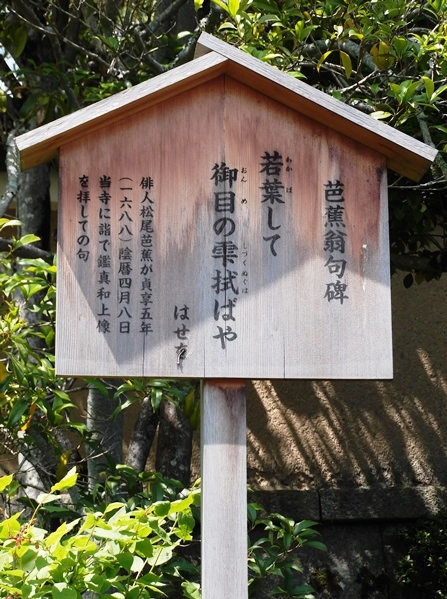 芭蕉翁句碑
わか は
若葉して
おん め しづくぬぐは
御目の雫拭ばや
はせを
俳人松尾芭蕉が貞享五年
(一六八八)陰暦四月八日
当寺に詣で鑑真和上像
を拝しての句